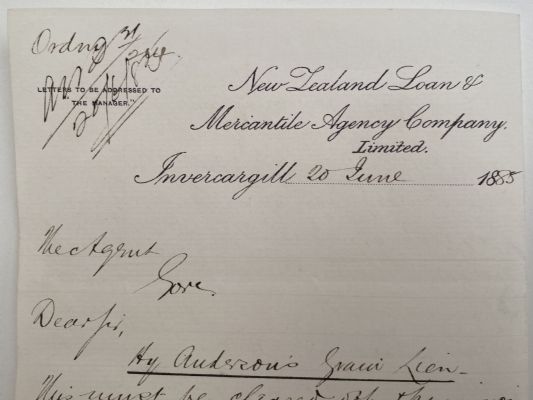 Ordng
LETTERS TO BE ADDRESSED TO
THE MANAGER."
New Zealand Loan &
Mercantile Agency Company.
Limited.
Invercargill 20 June 1885
The Agent
Gore.
Dear Sir,
Hy Anderson's Grain Lien -
This must be cleared off